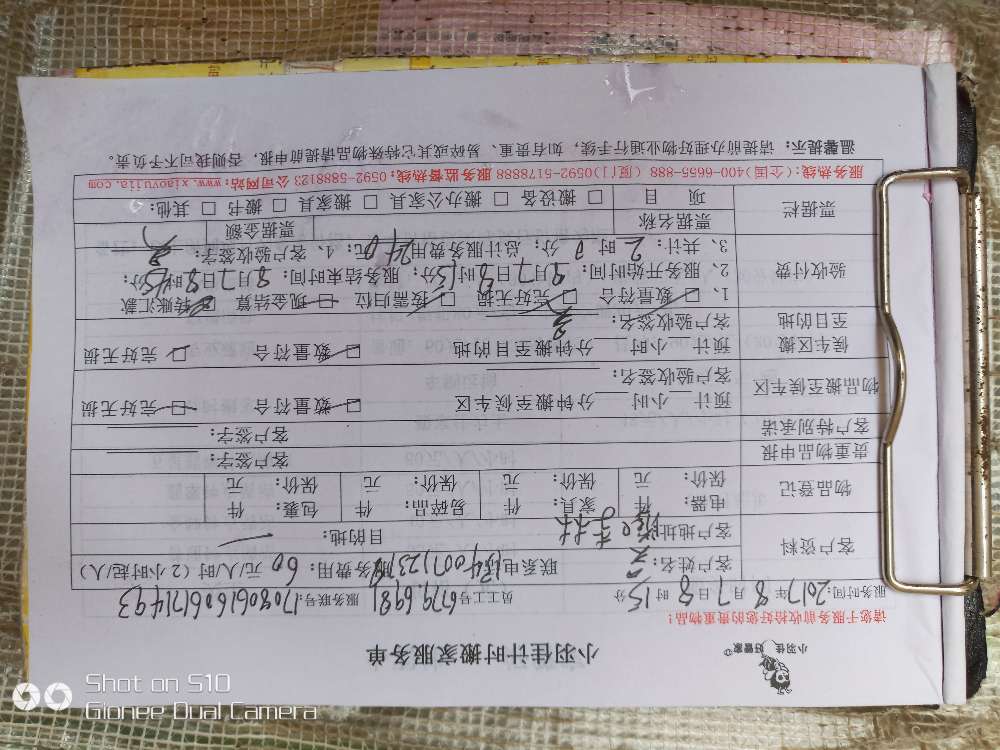 小羽佳 好管家
小羽佳计时搬家服务单
请您于服务前收拾好您的贵重物品：
服务时间：2017年8月7日8时15分 员工号：6779.6981 服务联号：1708061606171493
客户资料 客户姓名： 联系电话：13400712379 服务费用：60元/人/时（2小时起/人）
客户地址： 目的地：
物品登记 电器： 件 家具： 件 易碎品： 件 包裹： 件
保价： 元 保价： 元 保价： 元 保价： 元
贵重物品申报 客户签字：
客户特别承诺 客户签字：
物品搬至候车区 预计 小时 分钟搬至候车区 数量符合 完好无损
客户验收签名：
候车区搬至目的地 预计 小时 分钟搬至目的地 数量符合 完好无损
客户验收签名：
验收付费 1、 数量符合 完好无损 按需归位 现金结算 转账汇款
2、服务开始时间：8月7日8时15分；服务结束时间：8月7日 时 分；
3、共计：2时0分；总计服务费用240元。4、客户验收签字：
票据栏 票据名称 票据金额
项 目 搬设备 搬办公家具 搬家具 搬书 其他：
服务热线：(全国)400-6655-888 (厦门)0592-5178888 服务监督热线：0592-5888123 公司网站：www.xiaoyujia.com
温馨提示：请提前办理好物业通行手续，如有贵重、易碎或其它特殊物品请提前申报，否则我司不予负责。
Shot on S10
Gionee Dual Camera